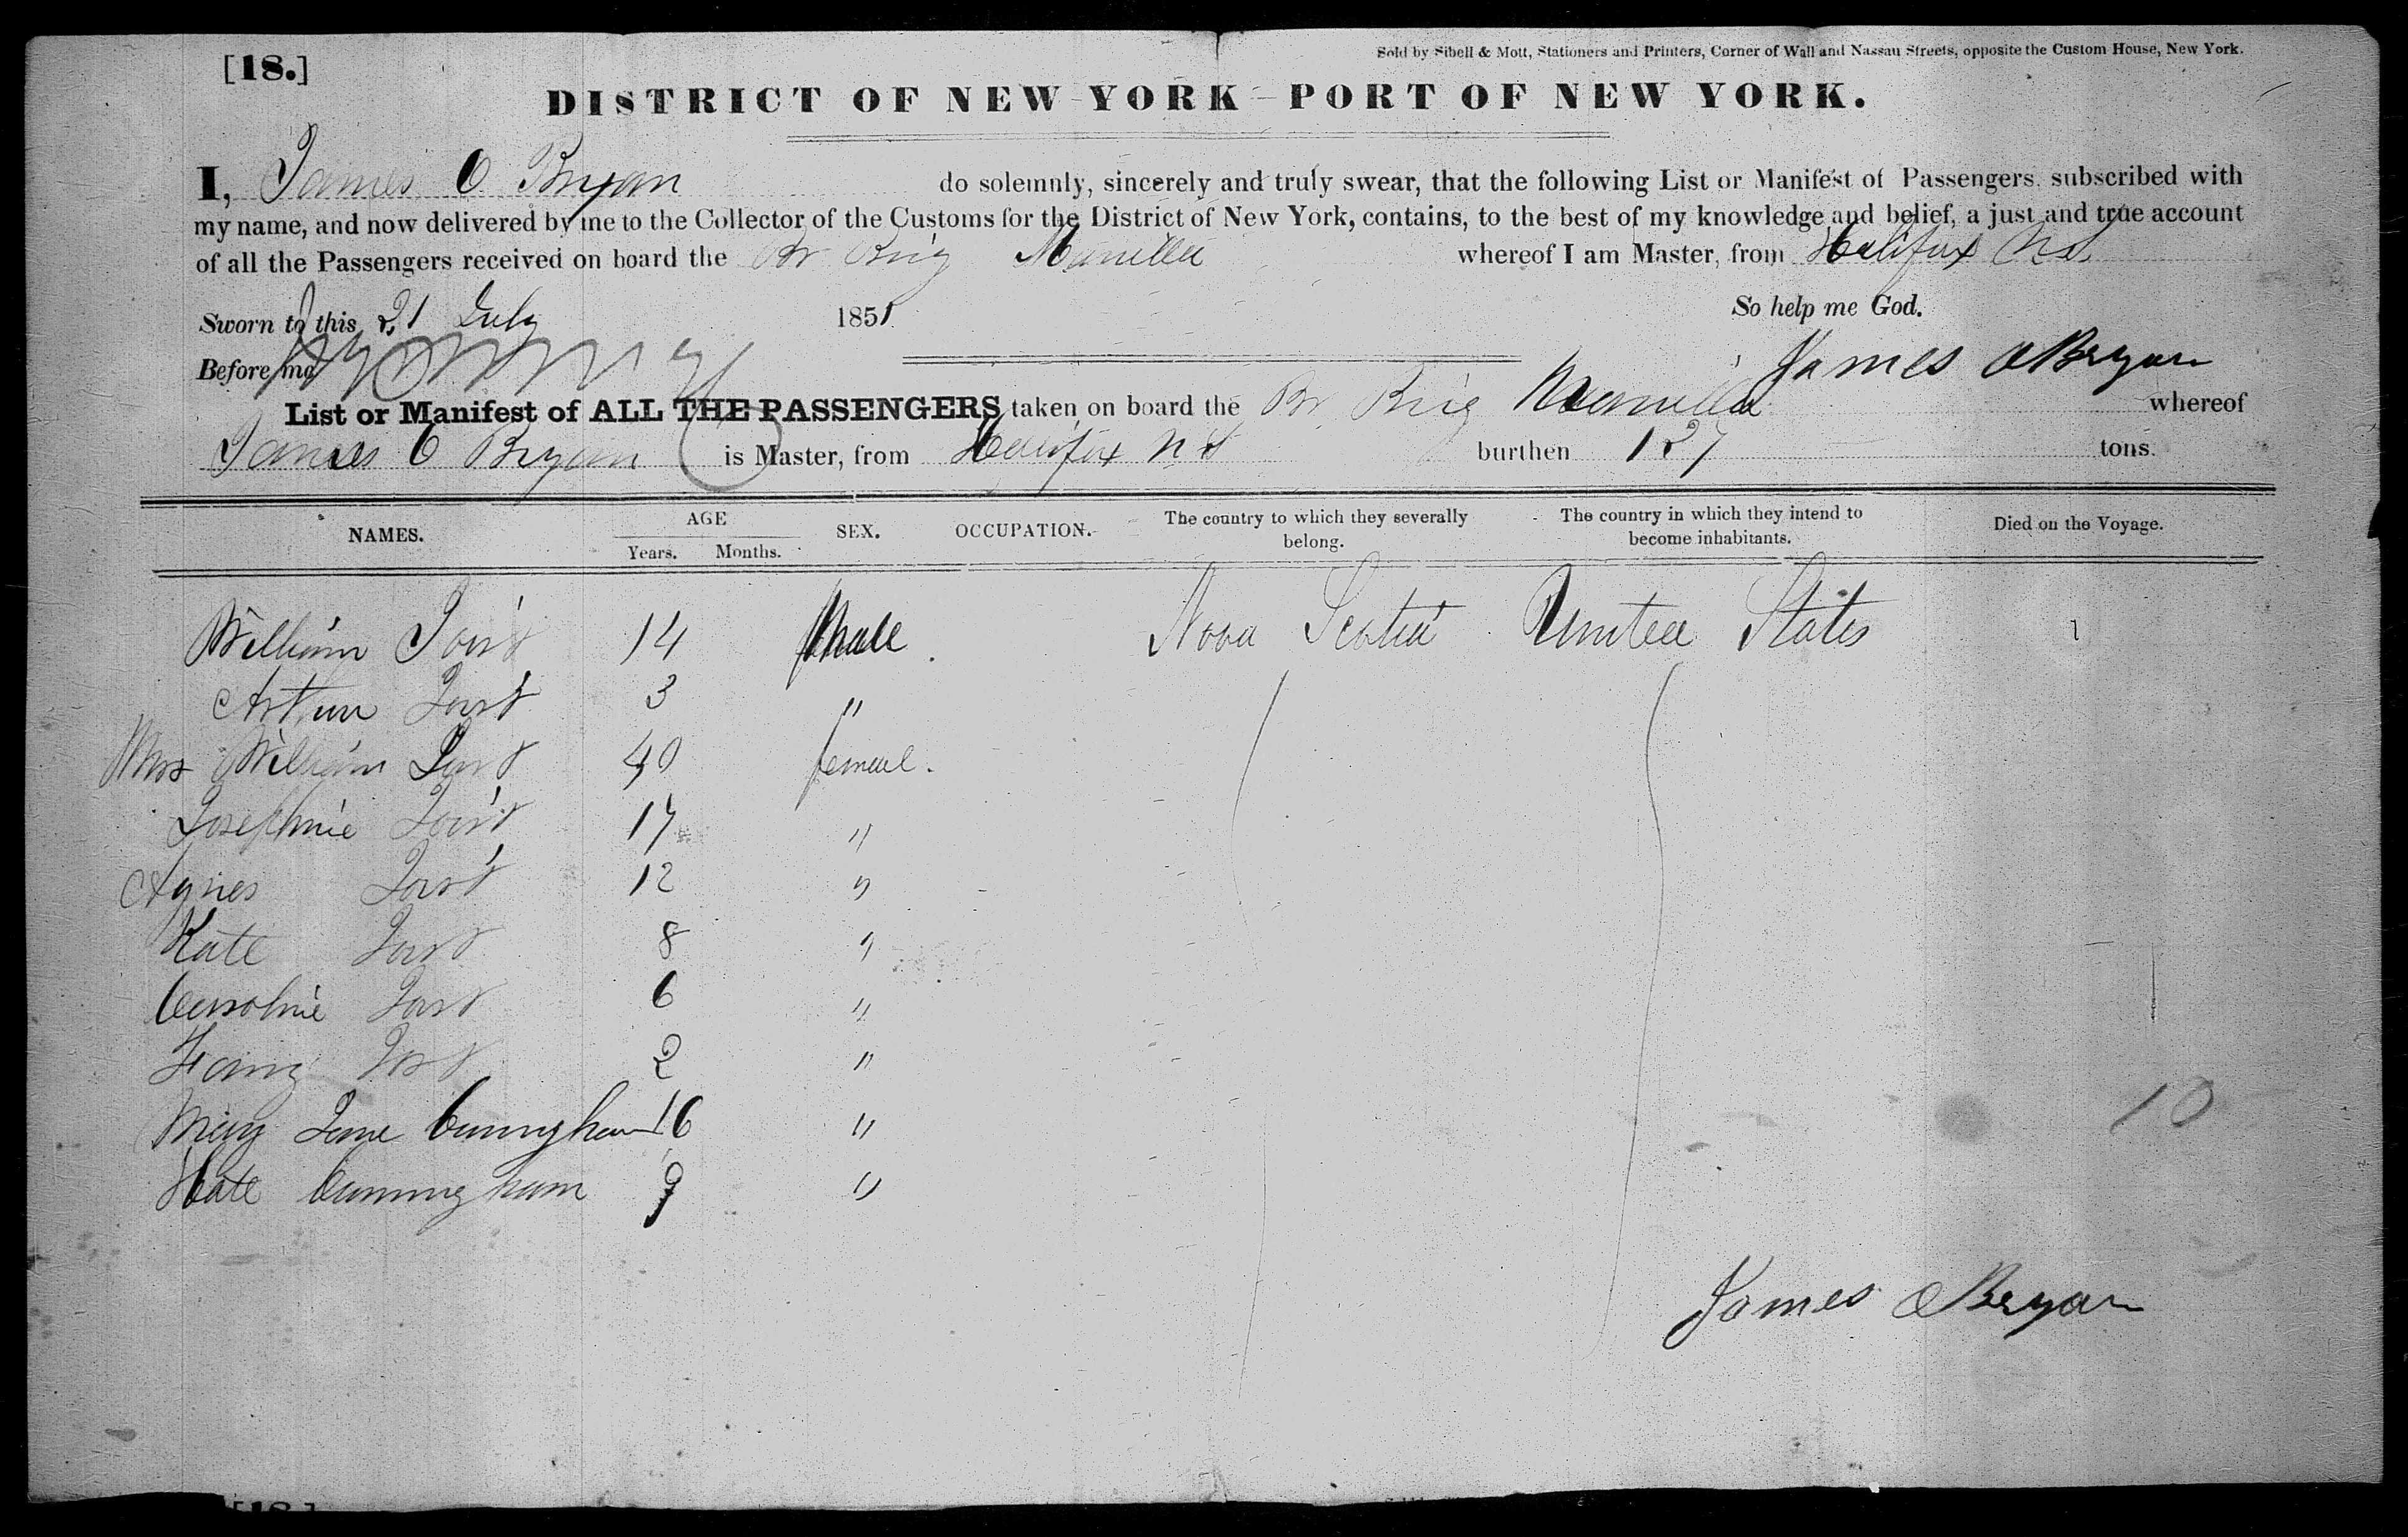 [18.]
Sold by Sibell & Mott, Stationers and Printers, Corner of Wall and Nassau Streets, opposite the Custom House, New York.
DISTRICT OF NEW YORK - PORT OF NEW YORK.
I, James O Bryan do solemnly, sincerely and truly swear, that the following List or Manifest of Passengers, subscribed with
my name, and now delivered by me to the Collector of the Customs for the District of New York, contains, to the best of my knowledge and belief, a just and true account
of all the Passengers received on board the Br Brig Manilla whereof I am Master, from Halifax N.S.
Sworn to this 21 July 1851 So help me God.
Before me James OBryan
List or Manifest of ALL THE PASSENGERS taken on board the Br Brig Manilla whereof
James O Bryan is Master, from Halifax N S burthen 127 tons.
NAMES. AGE Years. Months. SEX. OCCUPATION. The country to which they severally belong. The country in which they intend to become inhabitants. Died on the Voyage.
William Jost 14 Male Nova Scotia United States
Arthur Jost 3 "
Mrs William Jost 40 female.
Josephine Jost 17 "
Agnes Jost 12 "
Kate Jost 8 "
Caroline Jost 6 "
Jost 2 "
Mary Jane Cunningham 16 "
Kate Cunningham 9 "
10
James OBryan